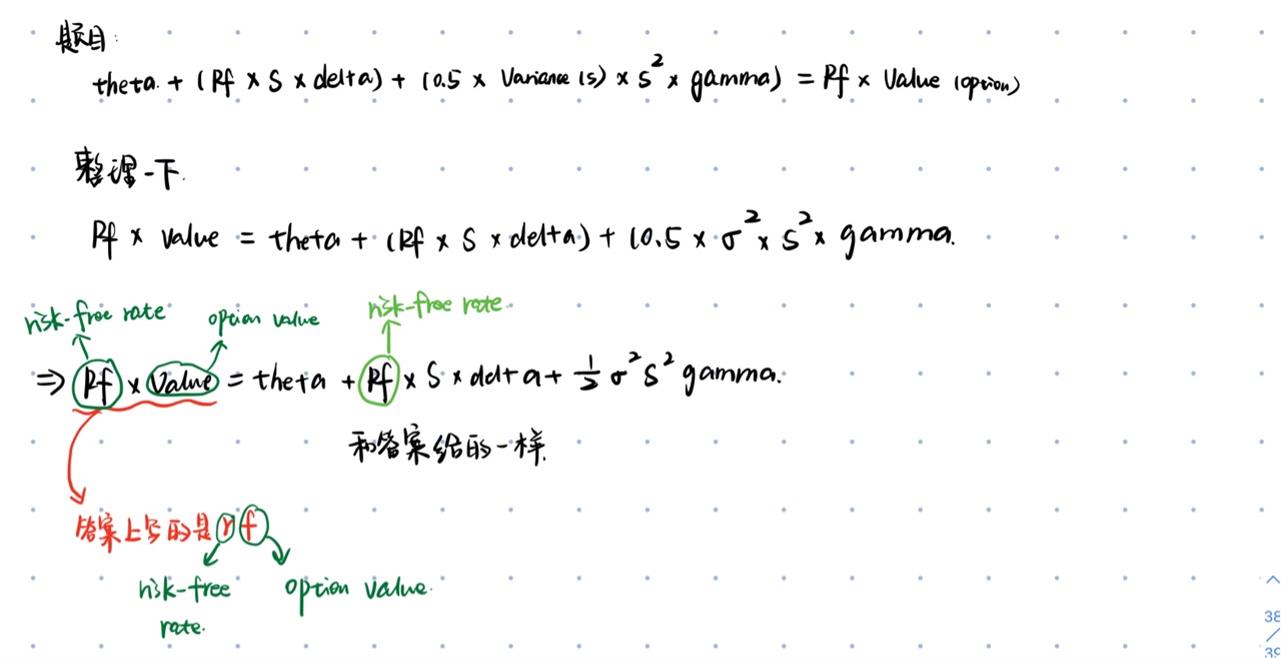 题目:
theta. + (Rf × S × delta) + (0.5 × Variance (s) × S² × gamma) = Rf × Value (option)
整理一下.
Rf × value = theta + (Rf × S × delta) + (0.5 × σ² × S² × gamma.
risk-free rate option value risk-free rate.
⇒ Rf × Value = theta + Rf × S × delta + ½ σ² S² gamma.
和答案给的一样.
答案上写的是 r f
risk-free rate. option value.
38
/
39